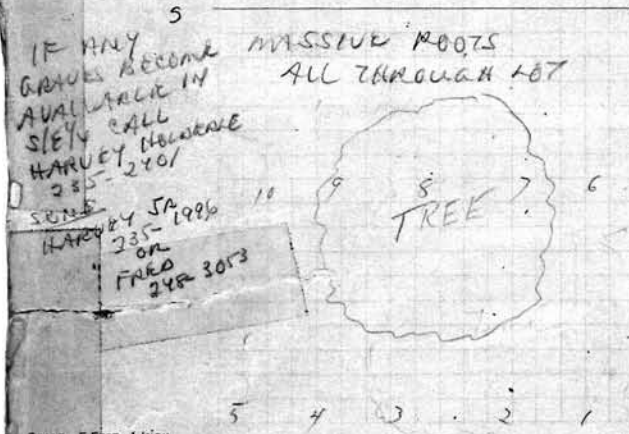 S
IF ANY
GRAVES BECOME
AVAILABLE IN
CALL
HARVEY
235-2401
SONS
HARVEY JR
235-1996
OR
FRED
248-3053
MASSIVE ROOTS
ALL THROUGH LOT
10 9 8 7 6
TREE
5 4 3 2 1